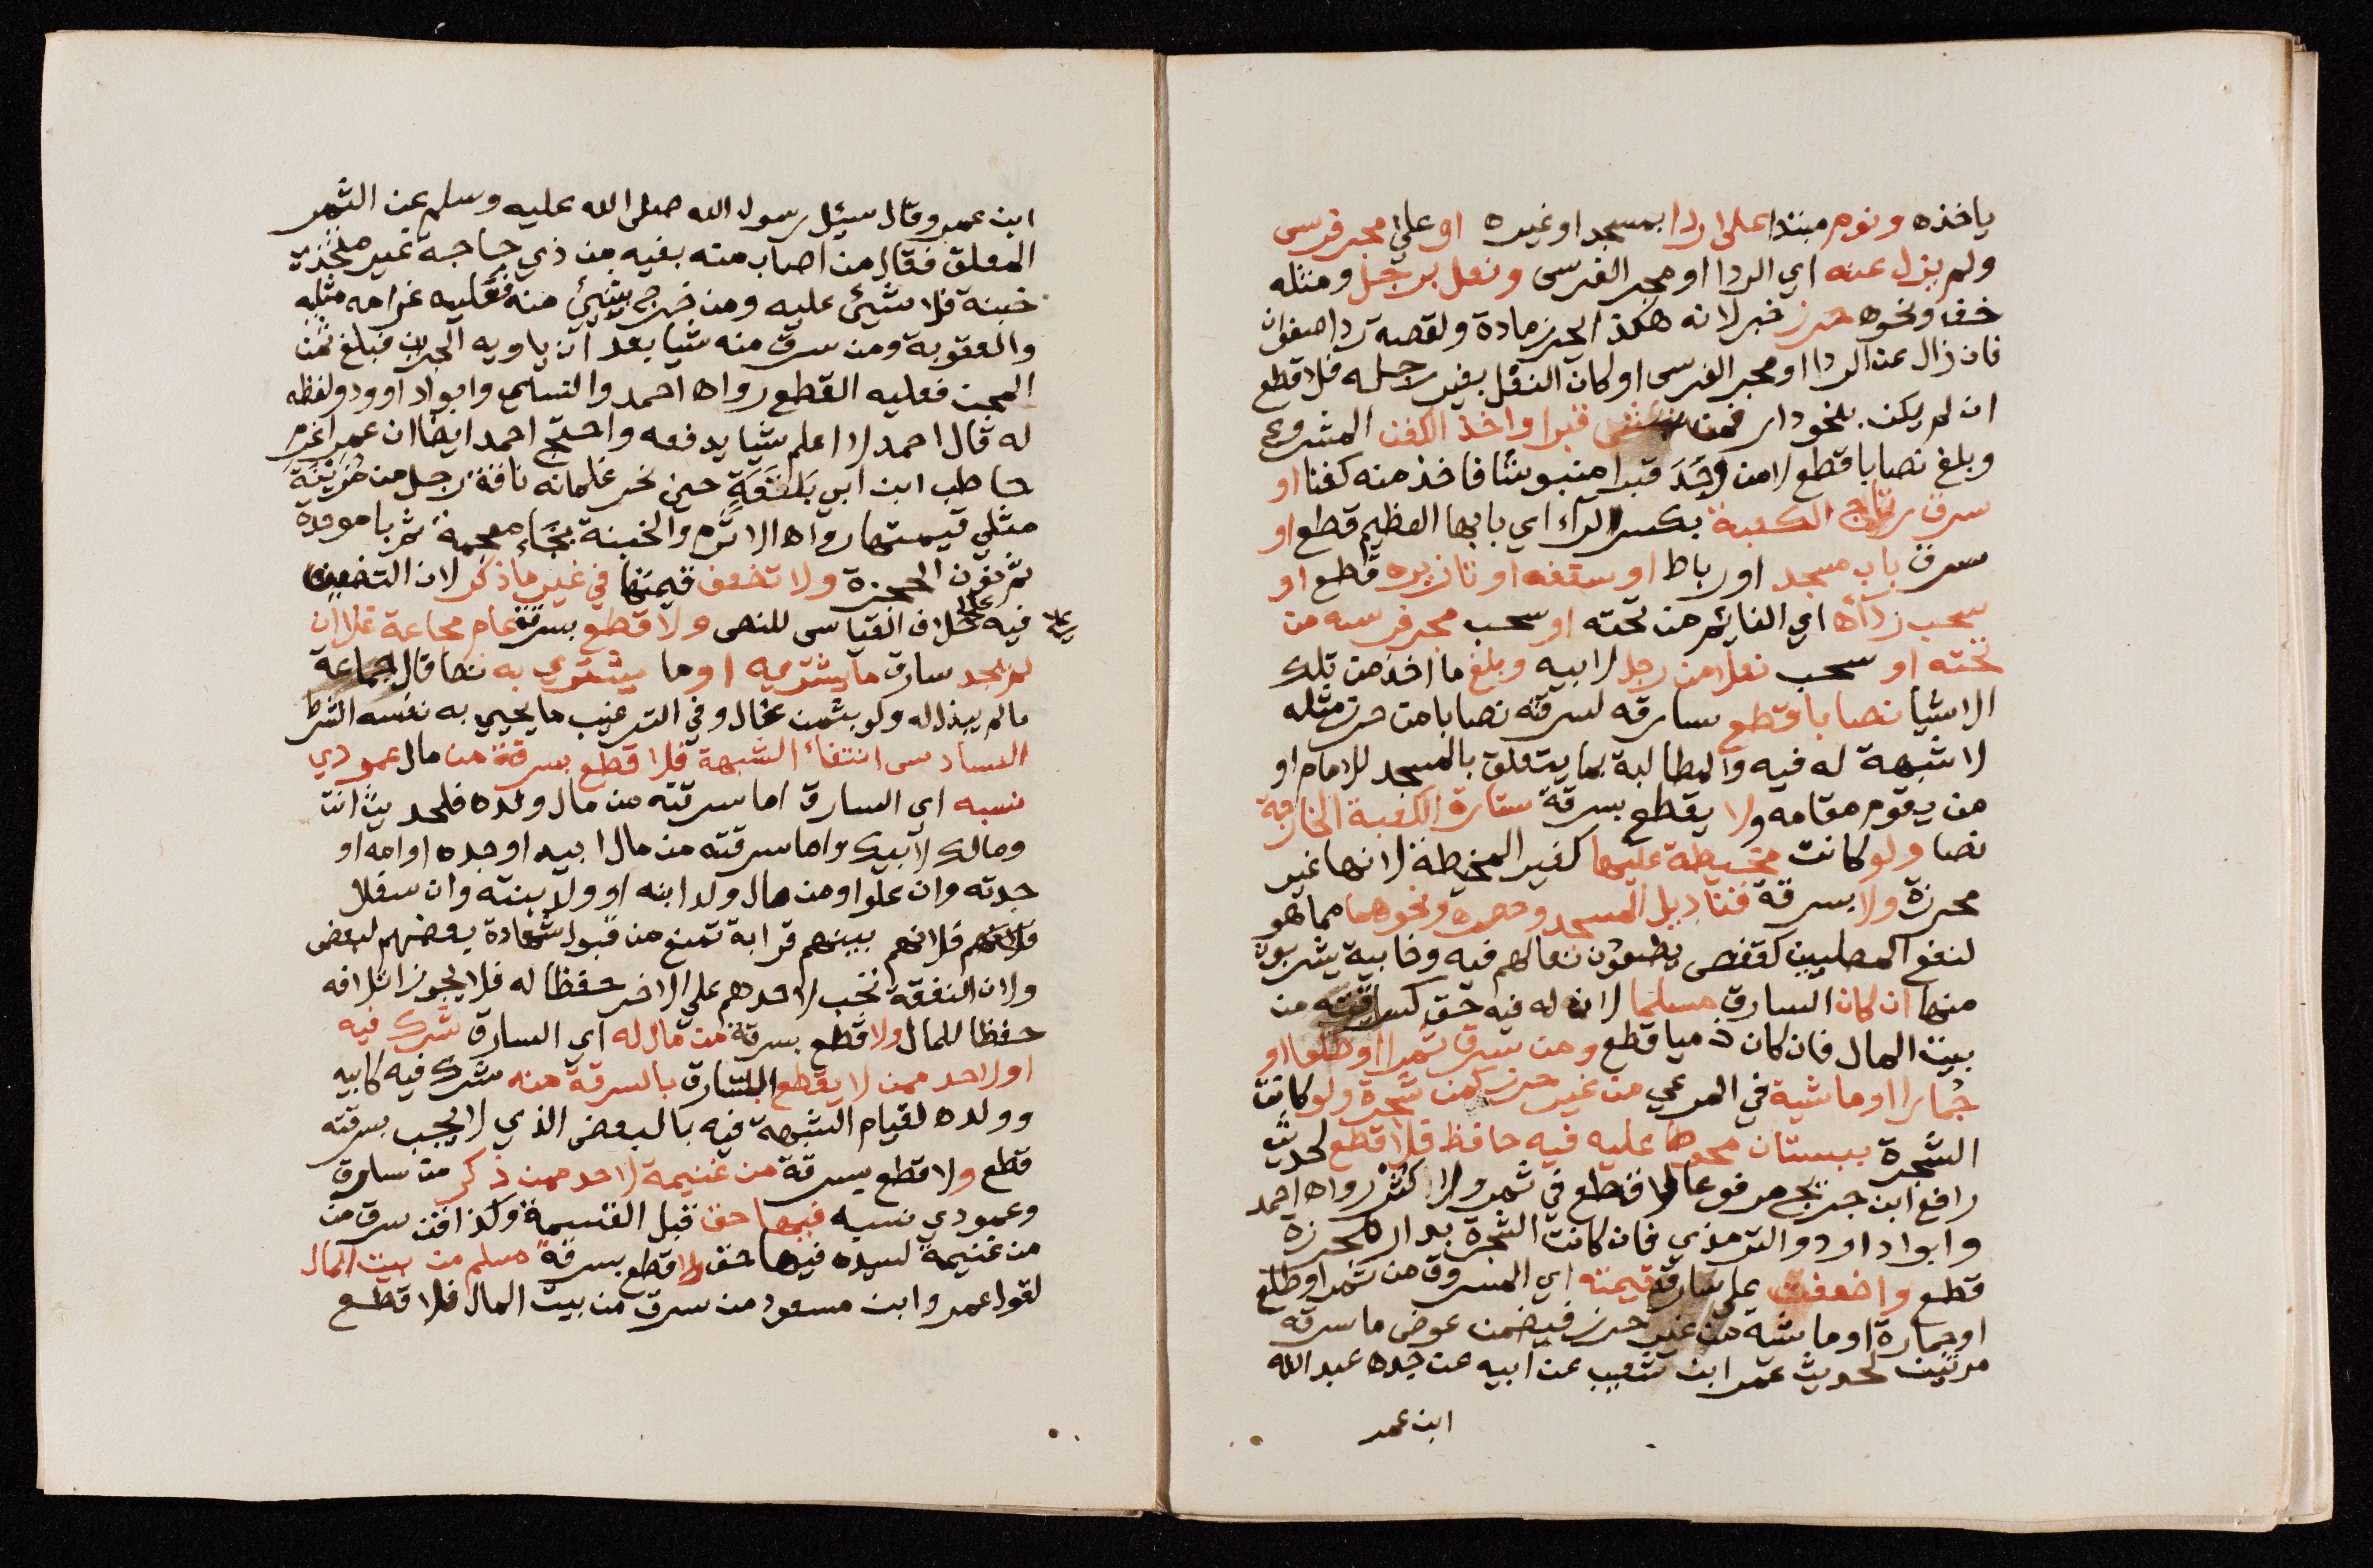 ياخذه ونوم مبتدا على ردا بمسجد او غيره او على مجر فرسى
ولم يزل عنه اي الردا او مجر الفرسى ونعل برجل ومثله
خف ونحوه حرز خبر لانه هكذا الحرز عادة ولقصة ردا صفوان
فان زال عن الردا او مجر الفرسى او كان النعل بغير رجله فلا قطع
ان لم يكن بنحو دار فمن نبش قبرا واخذ الكفن المشروع
وبلغ نصابا قطع لا من وجد قبرا منبوشا فاخذ منه كفنا او
سرق رتاج الكعبة بكسر الراء اي بابها العظيم قطع او
سرق باب مسجد او رباط او سقفه او تازيره قطع او
سحب رداه اي النايم من تحته او سحب مجر فرسه من
تحته او سحب نعلا من رجل لابيه وبلغ ما اخذ من تلك
الاشيا نصابا قطع سارقه لسرقته نصابا من حرز مثله
لا شبهة له فيه والمطالبة بما يتعلق بالمسجد للامام او
من يقوم مقامه ولا يقطع بسرقة ستارة الكعبة الخارجة
نصا ولو كانت مخيطة عليها كغير المخيطة لانها غير
محرزة ولا بسرقة قناديل المسجد وحصره ونحوهما مما هو
لنفع المصليين كقفص يضعون نعالهم فيه وخابية يشربون
منها ان كان السارق مسلما لان له فيه حق كسرقته من
بيت المال فان كان ذميا قطع ومن سرق تمرا او طلعا او
جمارا او ماشية في المرعى من غير حرز كمن شجرة ولو كانت
الشجرة ببستان محوط عليه فيه حافظ فلا قطع لحديث
رافع ابن خديج مرفوعا لا قطع في ثمر ولا كثر رواه احمد
وابوداوود والترمذي فان كانت الشجرة بدار محرزة
قطع واضعفت على سارق قيمته اي المسروق من ثمر او طلع
او جمارة او ماشية من غير حرز فيضمن عوض ما سرقه
مرتين لحديث عمر ابن شعيب عن ابيه عن جده عبد الله
ابن عمر
ابن عمر وقال سيئل رسول الله صلى الله عليه وسلم عن الثمر
المعلق فقال من اصاب منه بفيه من ذي حاجة غير متخذ
خبنة فلا شيئ عليه ومن خرج بشيئ منه فعليه غرامه مثليه
والعقوبة ومن سرق منه شيا بعد ان ياويه الجرين فبلغ ثمن
المجن فعليه القطع رواه احمد والنساىي وابوداوود ولفظه
له قال احمد لا اعلم شيا يدفعه واحتج احمد ايضا ان عمر اغرم
حاطب ابن ابي بلتعة حين نحر غلمانه ناقة رجل من مزينة
مثلي قيمتها رواه الاثرم والخبنة بخاء معجمة ثم با موحدة
ثم نون الحجزة ولا تضعف قيمتها في غير ما ذكر لان التضعيف
فيه على خلاف القياسى للنص ولا قطع بسرقة عام مجاعة غلا ان
لم يجد سارق ما يشتريه او ما يشتري به نصا قال جماعة
ما لم يبذل له ولو بثمن غال وفي الترغيب ما يحيي به نفسه الشرط
السادسى انتفاء الشبهة فلا قطع بسرقة من مال عمودي
نسبه اي السارق اما سرقته من مال ولده فلحديث انت
ومالك لابيك واما سرقته من مال ابيه او جده او امه او
جدته وان علوا ومن مال ولد ابنه او ولد بنته وان سفلا
فلانهم بينهم قرابة تمنع من قبول شهادة بعضهم لبعض
ولان النفقة تجب لاحدهم على الاخر حفظا له فلا يجوز اتلافه
حفظا للمال ولا قطع بسرقة من مال له اي السارق شرك فيه
او لاحد ممن لا يقطع السارق بالسرقة منه شرك فيه كابيه
وولده لقيام الشبهة فيه بالبعض الذي لا يجب بسرقته
قطع ولا قطع بسرقة من غنيمة لاحد ممن ذكر من سارق
وعمودي نسبه فيها حق قبل القسمة وكذا قن سرق من
من غنيمة لسيده فيها حق ولا قطع بسرقة مسلم من بيت المال
لقول عمر وابن مسعود من سرق من بيت المال فلا قطع